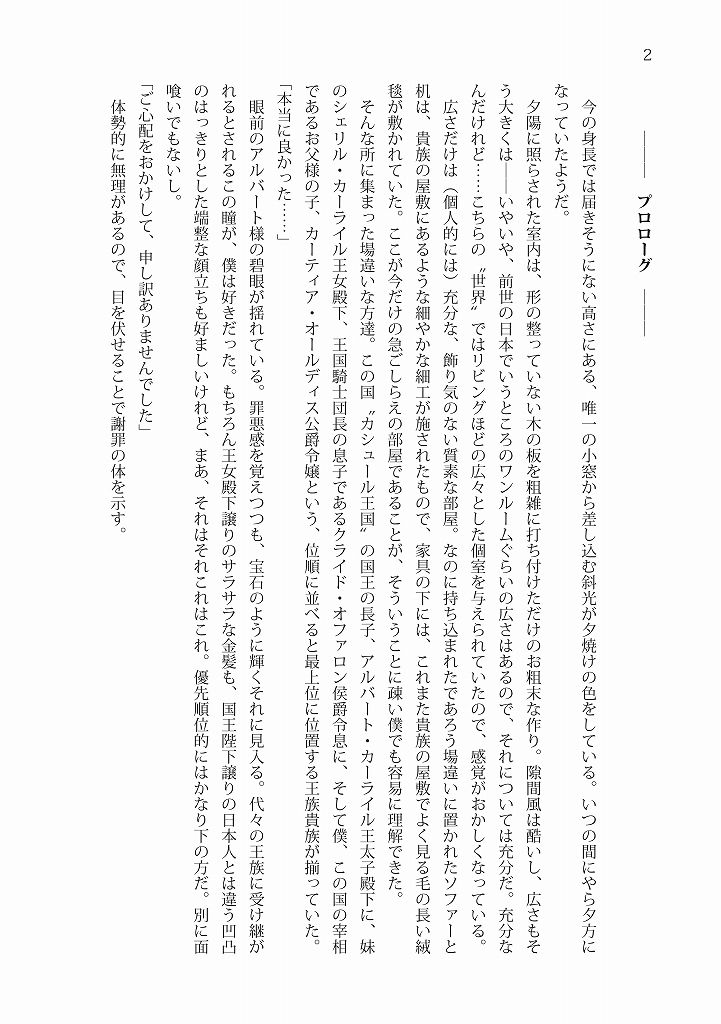 2
―― プロローグ ――
　今の身長では届きそうにない高さにある、唯一の小窓から差し込む斜光が夕焼けの色をしている。いつの間にやら夕方に
なっていたようだ。
　夕陽に照らされた室内は、形の整っていない木の板を粗雑に打ち付けただけのお粗末な作り。隙間風は酷いし、広さもそ
う大きくは――いやいや、前世の日本でいうところのワンルームぐらいの広さはあるので、それについては充分だ。充分な
んだけれど……こちらの〝世界〟ではリビングほどの広々とした個室を与えられていたので、感覚がおかしくなっている。
　広さだけは（個人的には）充分な、飾り気のない質素な部屋。なのに持ち込まれたであろう場違いに置かれたソファーと
机は、貴族の屋敷にあるような細やかな細工が施されたもので、家具の下には、これまた貴族の屋敷でよく見る毛の長い絨
毯が敷かれていた。ここが今だけの急ごしらえの部屋であることが、そういうことに疎い僕でも容易に理解できた。
　そんな所に集まった場違いな方達。この国〝カシュール王国〟の国王の長子、アルバート・カーライル王太子殿下に、妹
のシェリル・カーライル王女殿下、王国騎士団長の息子であるクライド・オファロン侯爵令息に、そして僕、この国の宰相
であるお父様の子、カーティア・オールディス公爵令嬢という、位順に並べると最上位に位置する王族貴族が揃っていた。
「本当に良かった……」
　眼前のアルバート様の碧眼が揺れている。罪悪感を覚えつつも、宝石のように輝くそれに見入る。代々の王族に受け継が
れるとされるこの瞳が、僕は好きだった。もちろん王女殿下譲りのサラサラな金髪も、国王陛下譲りの日本人とは違う凹凸
のはっきりとした端整な顔立ちも好ましいけれど、まあ、それはそれこれはこれ。優先順位的にはかなり下の方だ。別に面
喰いでもないし。
「ご心配をおかけして、申し訳ありませんでした」
　体勢的に無理があるので、目を伏せることで謝罪の体を示す。